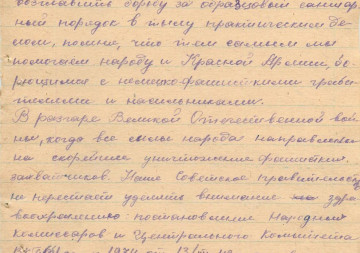 возглавить борьбу за образцовый санитар-
ный порядок в тылу практическим де-
лом, помня, что тем самым мы
помогаем народу и Красной Армии, бо-
рющимся с немецко-фашистскими граби-
телями и насильниками.
В разгаре Великой Отечественной вой-
ны, когда все силы народа направлены
на скорейшее уничтожение фашистских
захватчиков. Наше Советское правительство
не перестает уделять внимание здра-
воохранению постановление Народных
комиссаров и Центрального Комитета